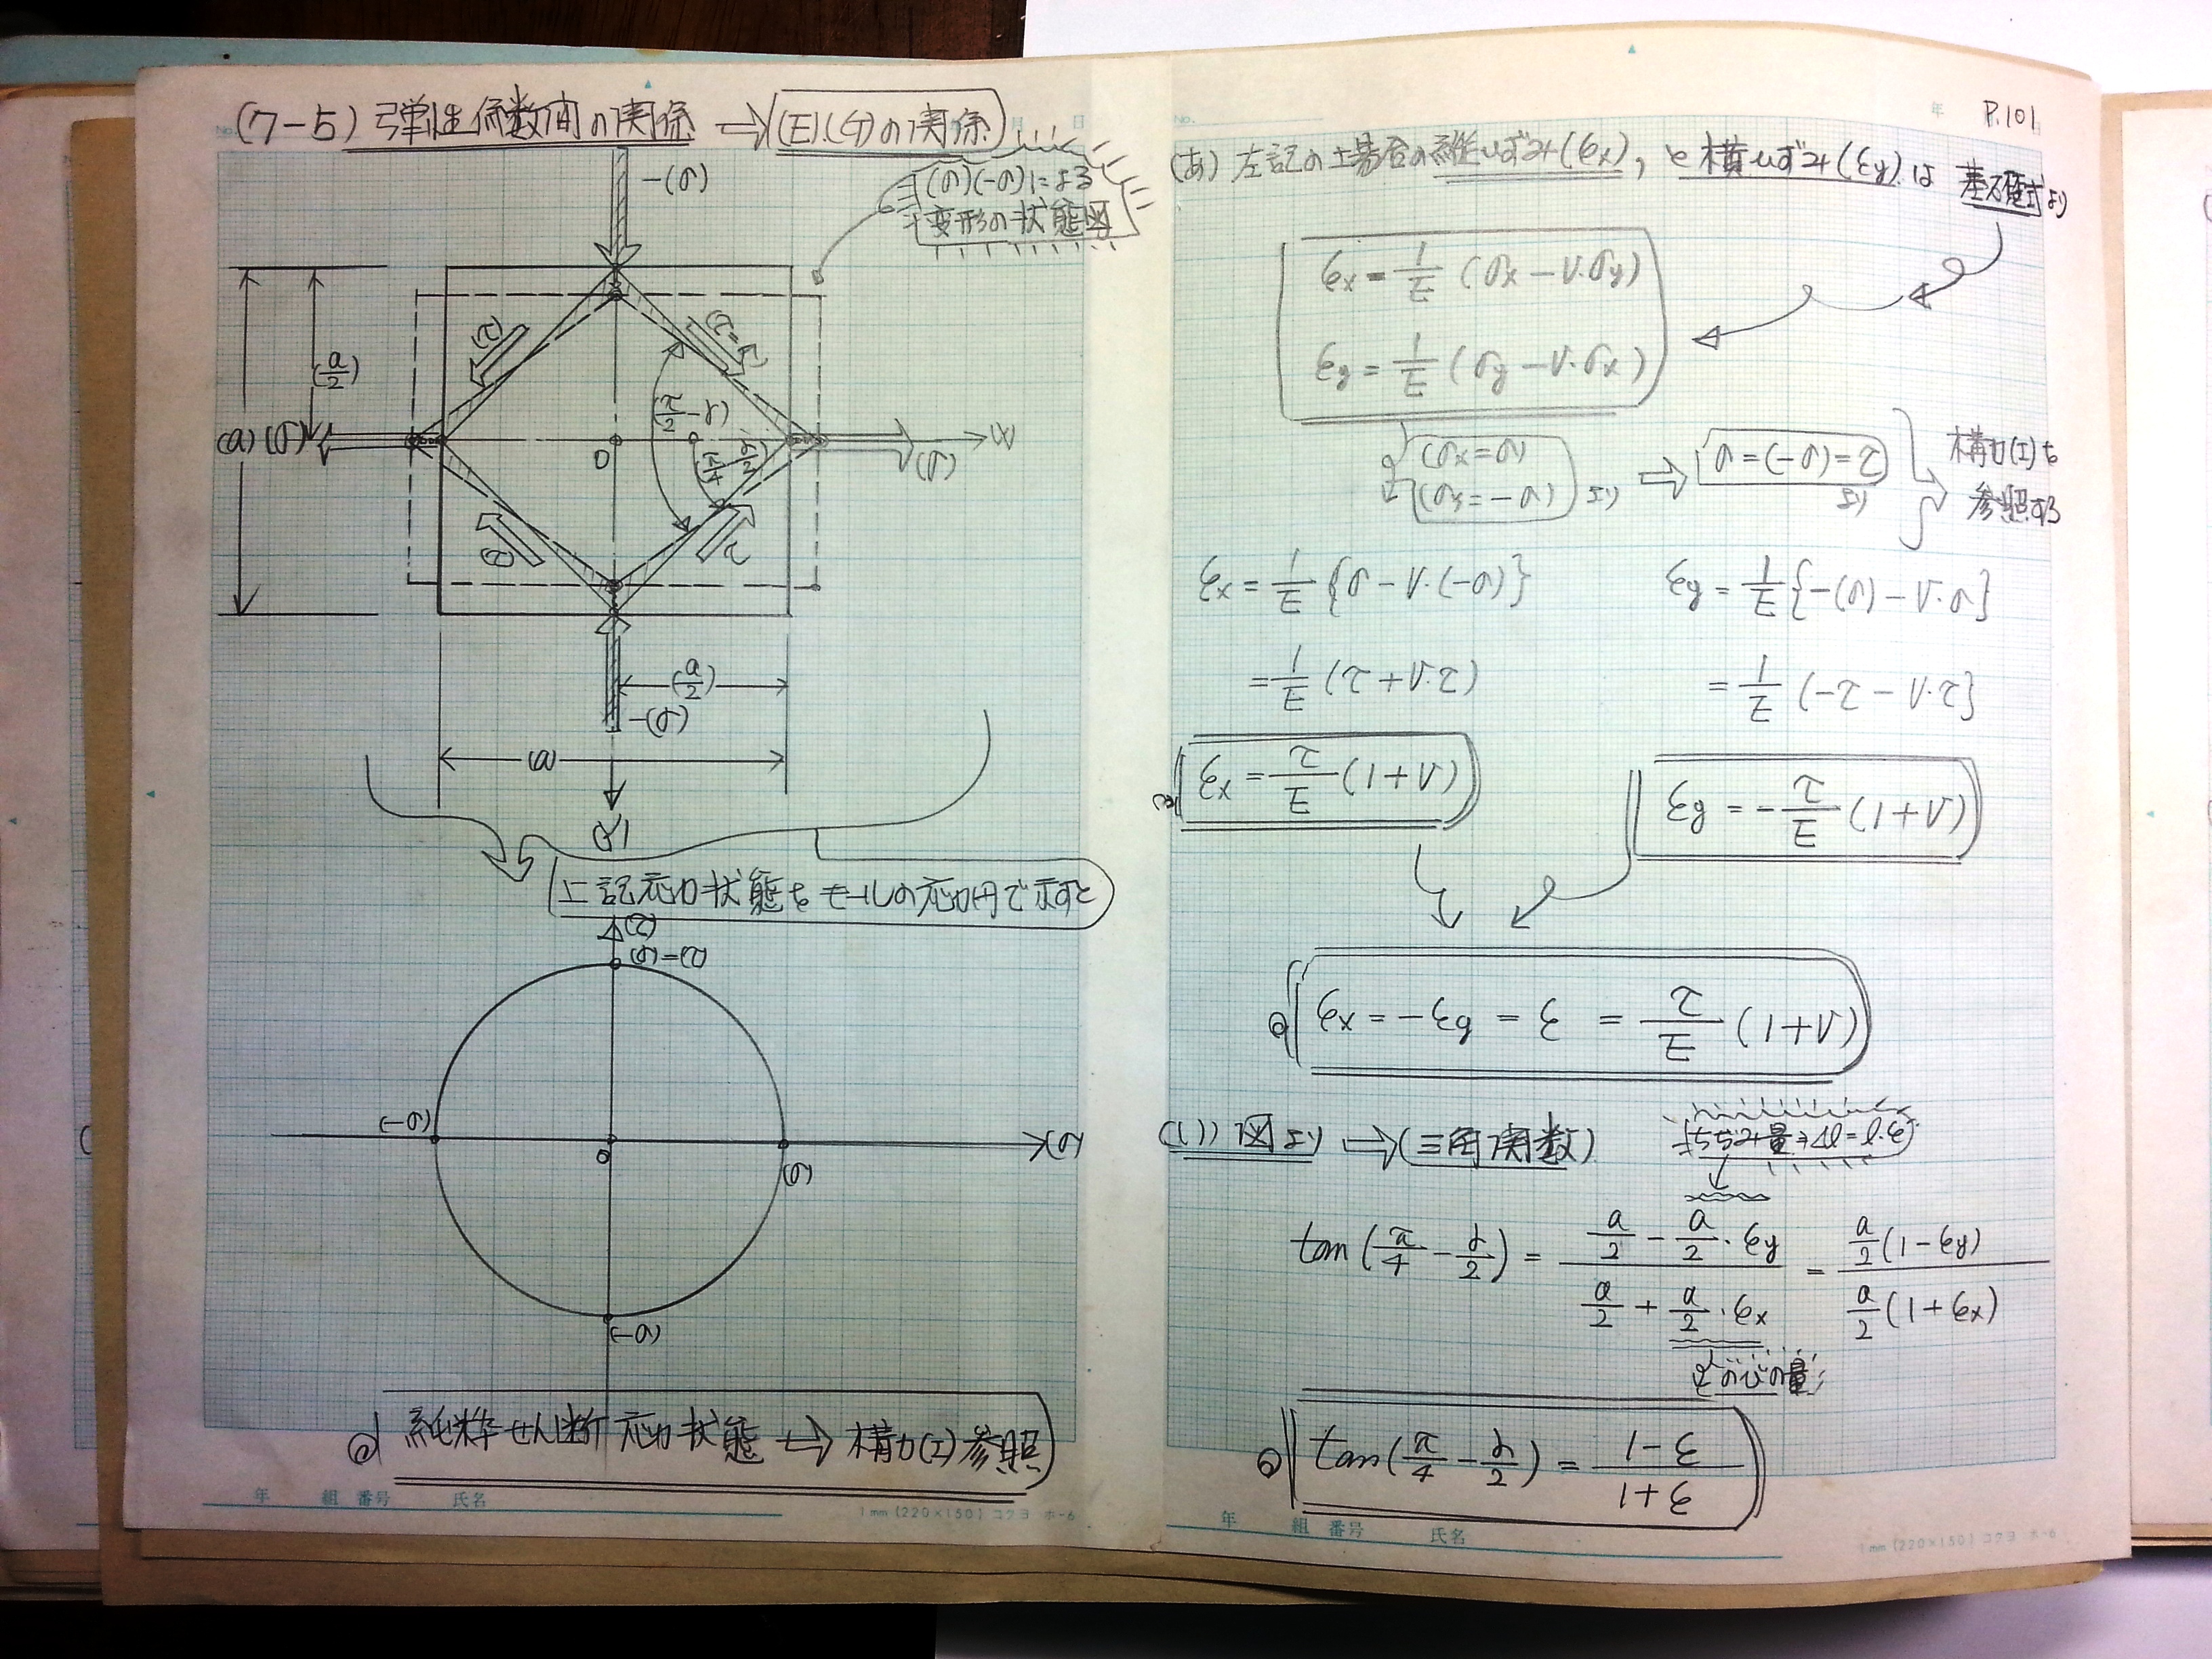 (7-5) 弾性係数間の関係 ⇒ (E)(G)の関係
No.
月 日
-(σ)
(σ)(-σ)による
変形の状態図
(τ)
(a/2)
(π/2-γ)
(a) (σ)
0
(π/4-γ/2)
(x)
(σ)
(τ)
τ
(a/2)
-(σ)
(a)
(y)
上記応力状態をモールの応力円で示すと
(τ)
(σ)=(τ)
(-σ)
0
(σ)
(σ)
(-σ)
純粋せん断応力状態 ⇒ 構力(I)参照
年 組 番号 氏名
1mm (220×150) コクヨ ホ-6
No.
年
P.101
(あ) 左記の場合の縦ひずみ(εx), と横ひずみ(εy)は 基礎式より
εx = 1/E (σx - ν・σy)
εy = 1/E (σy - ν・σx)
(σx=σ)
(σy=-σ) より ⇒ σ=(-σ)=τ より
構力(I)を
参照する
εx = 1/E {σ - ν・(-σ)}
εy = 1/E {-(σ) - ν・σ}
= 1/E (τ + ν・τ)
= 1/E (-τ - ν・τ}
εx = τ/E (1+ν)
εy = -τ/E (1+ν)
εx = -εy = ε = τ/E (1+ν)
(い) 図より ⇒ (三角関数)
ちぢむ量 Δl=l・ε
tan(π/4 - γ/2) = (a/2 - a/2・εy)/(a/2 + a/2・εx) = a/2(1-εy)/a/2(1+εx)
のびの量
tan(π/4 - γ/2) = 1-ε/1+ε
年 組 番号 氏名
1mm (220×150) コクヨ ホ-6